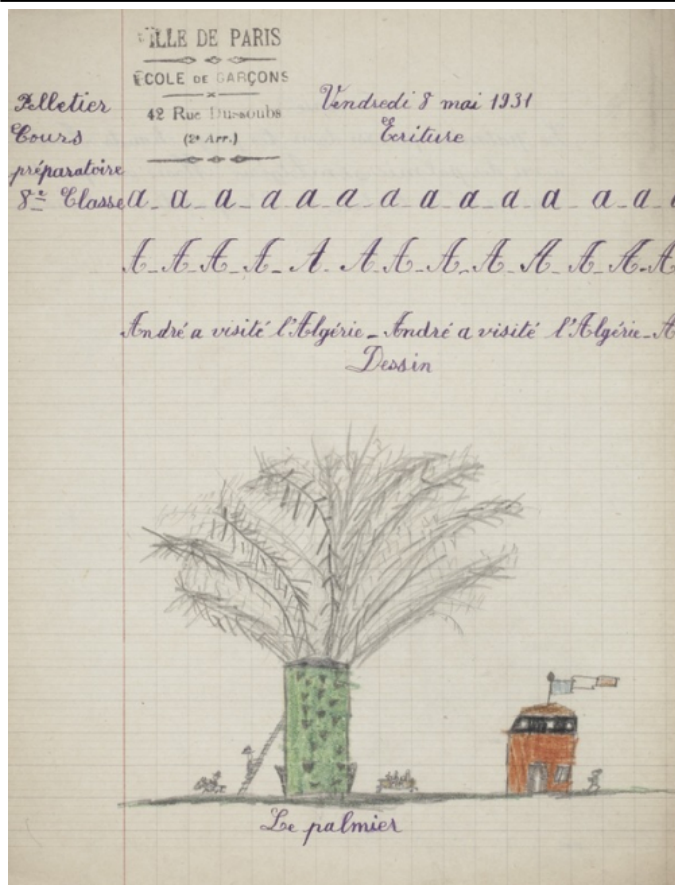 VILLE DE PARIS
ÉCOLE DE GARÇONS
42 Rue Dussoubs
(2e Arr.)
Pelletier
Cours
préparatoire
8e Classe
Vendredi 8 mai 1931
Ecriture
a a a a a a a a a a a a a
A A A A A A A A A A A A A
André a visité l'Algérie - André a visité l'Algérie - A
Dessin
Le palmier